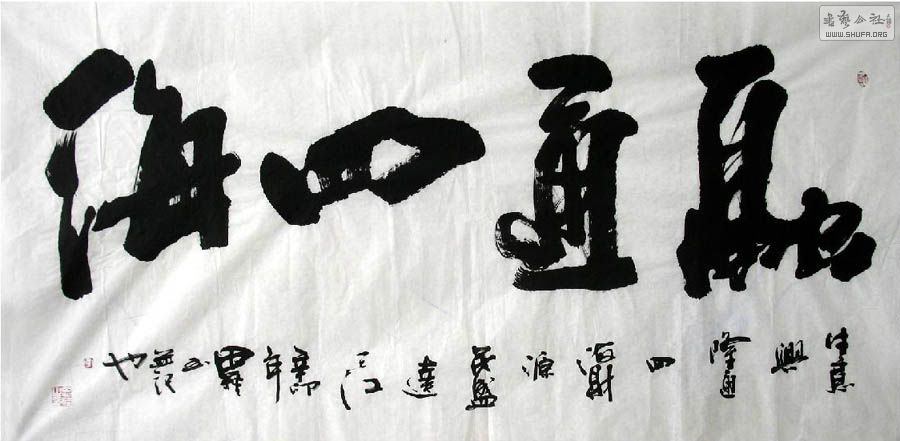 融通四海
生意興隆通四海財源茂盛達三江
书艺公社
WWW.SHUFA.ORG